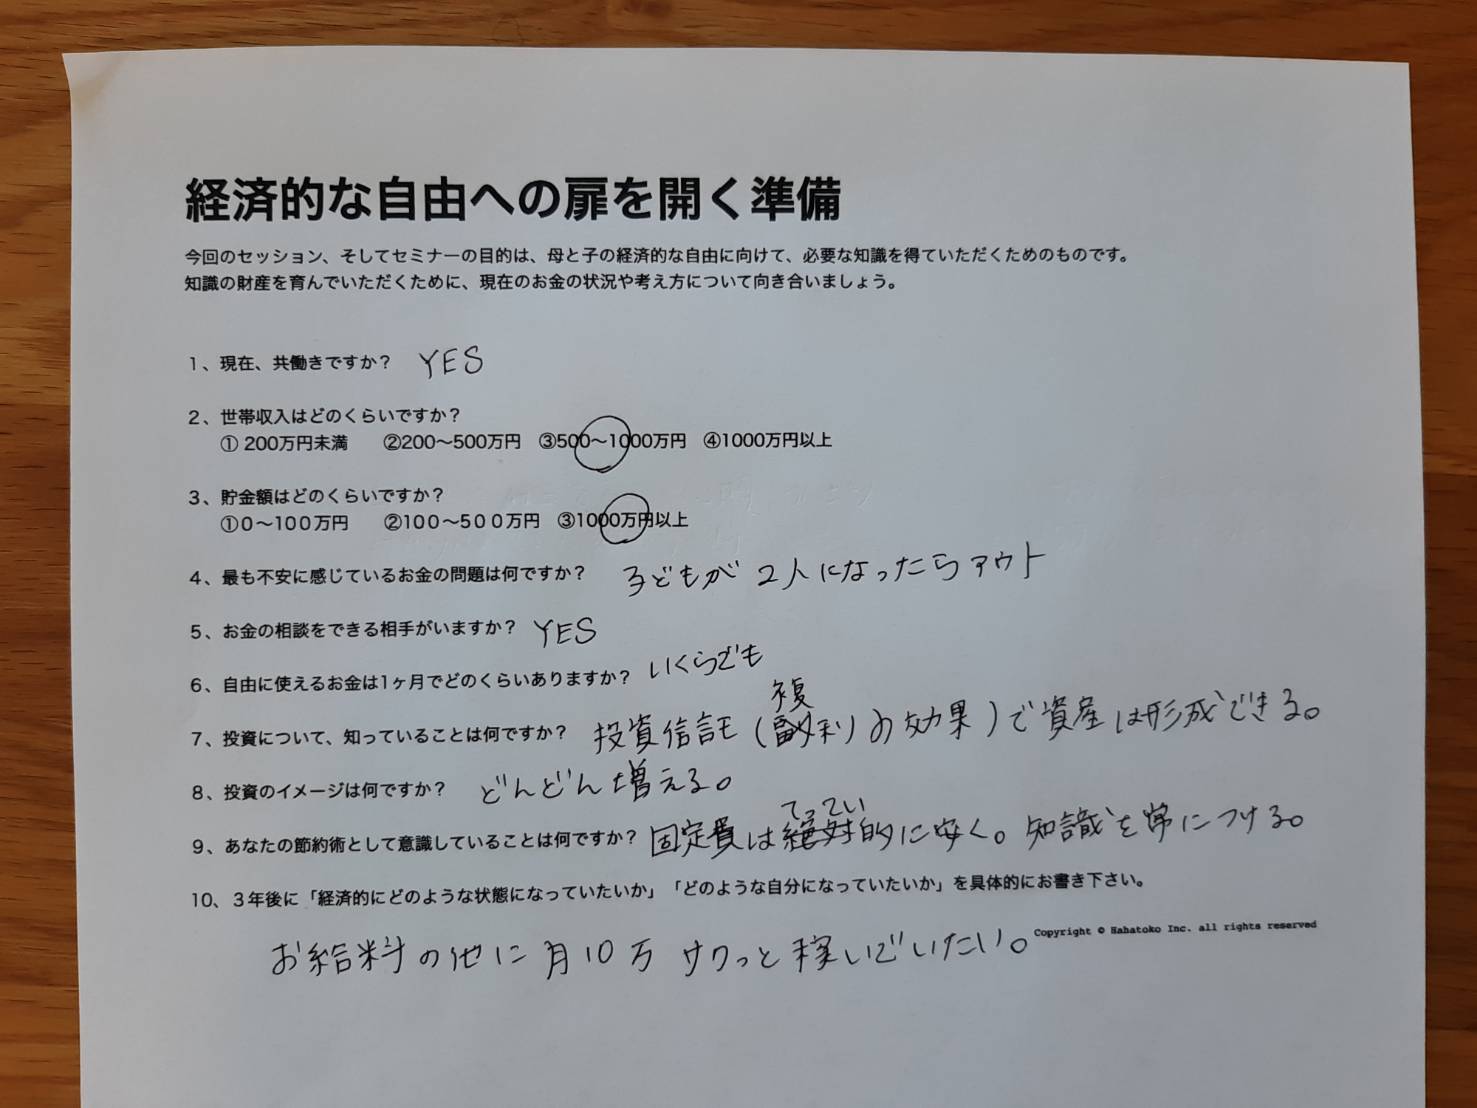 経済的な自由への扉を開く準備
今回のセッション、そしてセミナーの目的は、母と子の経済的な自由に向けて、必要な知識を得ていただくためのものです。
知識の財産を育んでいただくために、現在のお金の状況や考え方について向き合いましょう。
1、現在、共働きですか？ YES
2、世帯収入はどのくらいですか？
① 200万円未満 ②200〜500万円 ③500〜1000万円 ④1000万円以上
3、貯金額はどのくらいですか？
①０〜１００万円 ②１００〜５００万円 ③1000万円以上
4、最も不安に感じているお金の問題は何ですか？ 子どもが2人になったらアウト
5、お金の相談をできる相手がいますか？ YES
6、自由に使えるお金は1ヶ月でどのくらいありますか？ いくらでも
複
7、投資について、知っていることは何ですか？ 投資信託（利の効果）で資産は形成できる。
8、投資のイメージは何ですか？ どんどん増える。
てってい
9、あなたの節約術として意識していることは何ですか？ 固定費は的に安く。知識を常につける。
10、３年後に「経済的にどのような状態になっていたいか」「どのような自分になっていたいか」を具体的にお書き下さい。
Copyright © Hahatoko Inc. all rights reserved
お給料の他に月10万サクっと稼いでいたい。